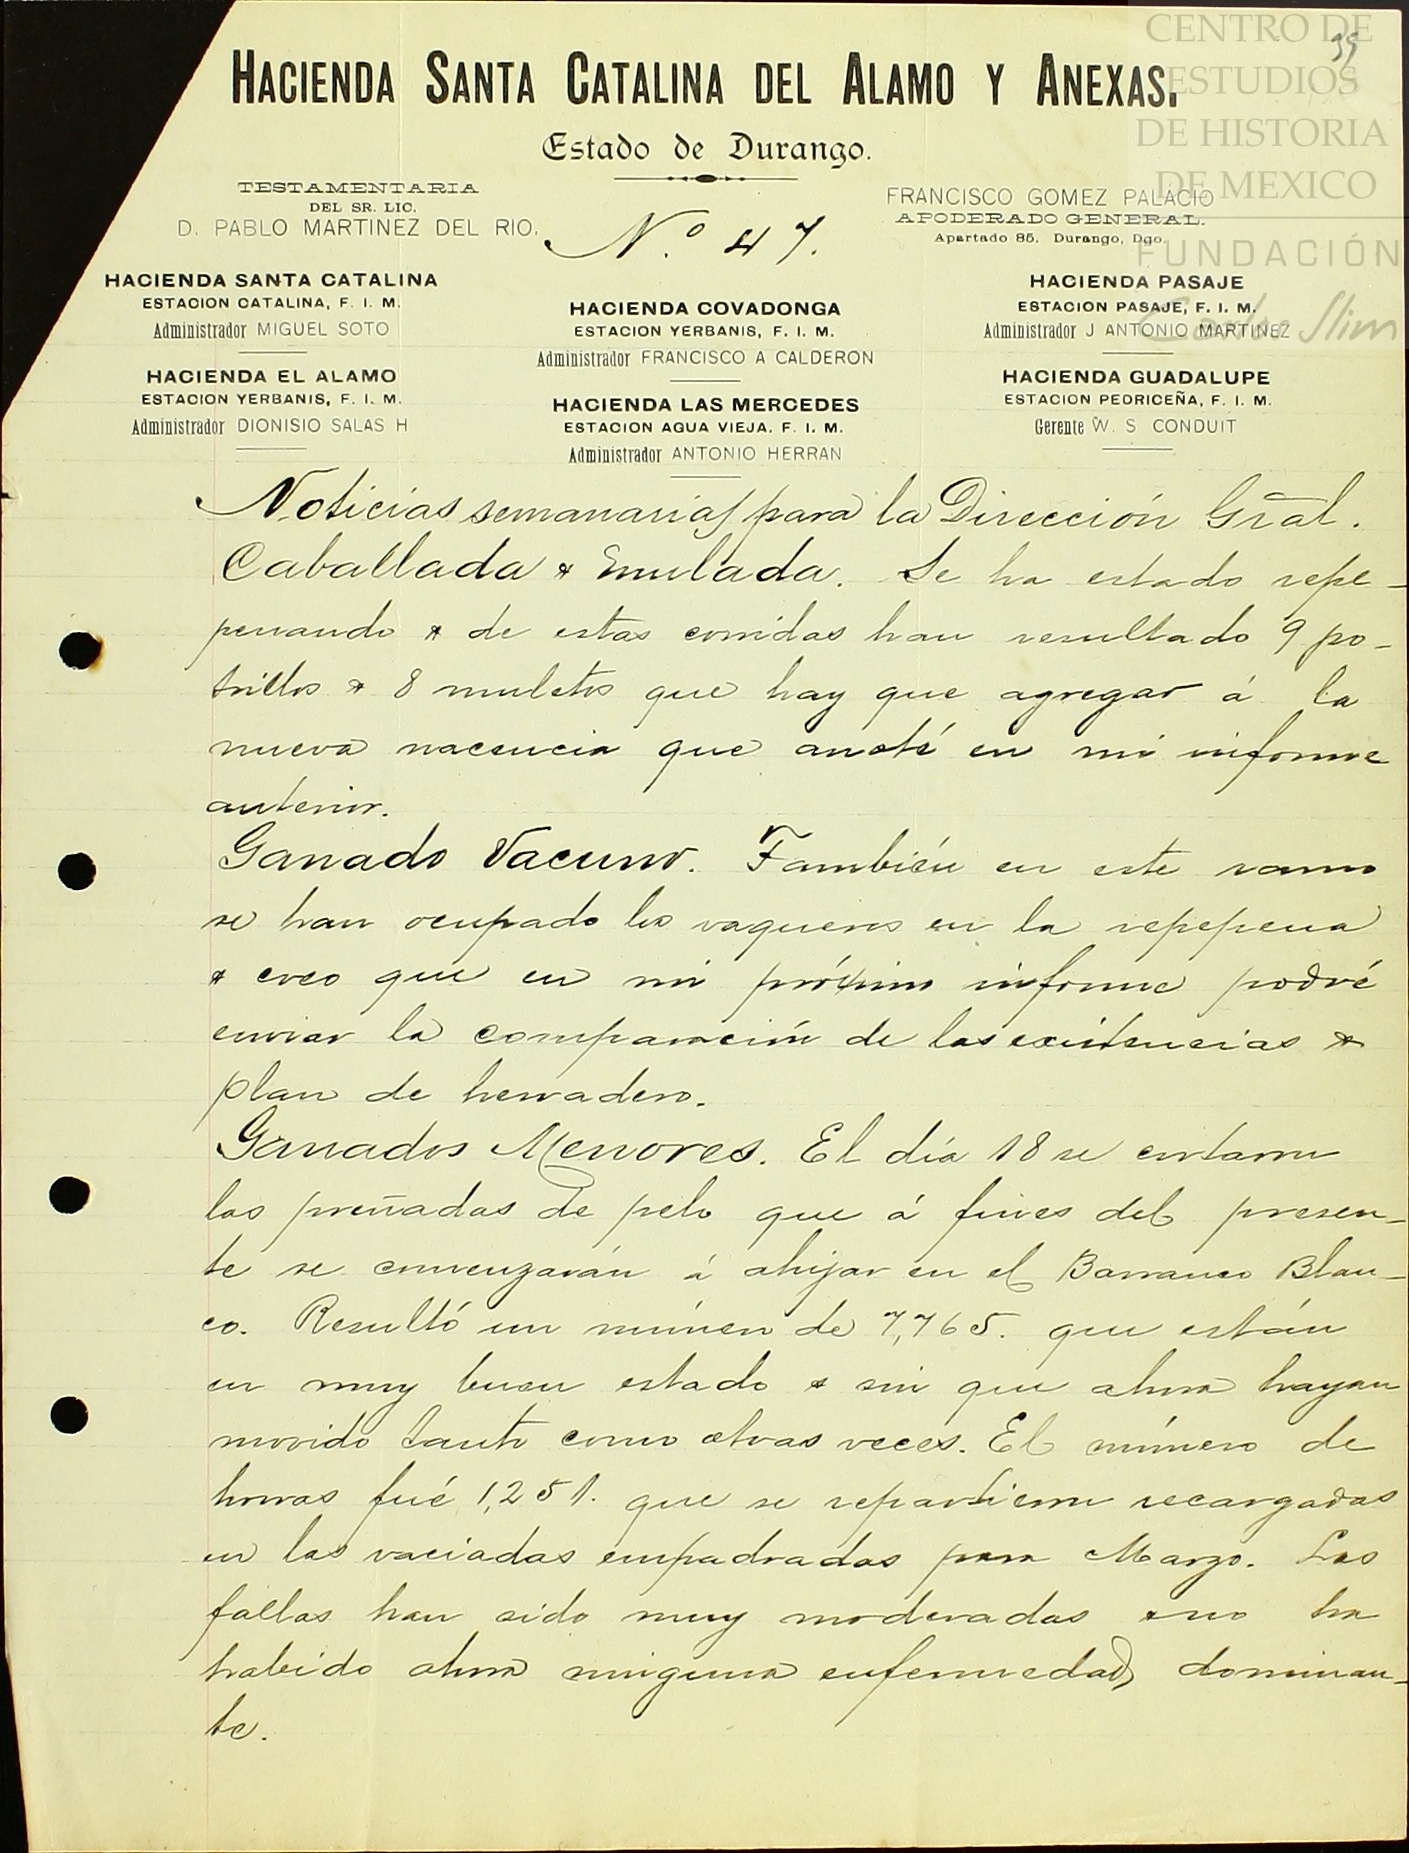 CENTRO DE
ESTUDIOS
DE HISTORIA
DE MEXICO
FUNDACIÓN
Carlos Slim
39
HACIENDA SANTA CATALINA DEL ALAMO Y ANEXAS.
Estado de Durango.
TESTAMENTARIA
DEL SR. LIC.
D. PABLO MARTINEZ DEL RIO.
Nº. 47.
FRANCISCO GOMEZ PALACIO
APODERADO GENERAL.
Apartado 85. Durango, Dgo.
HACIENDA SANTA CATALINA
ESTACION CATALINA, F. I. M.
Administrador MIGUEL SOTO
HACIENDA EL ALAMO
ESTACION YERBANIS, F. I. M.
Administrador DIONISIO SALAS H
HACIENDA COVADONGA
ESTACION YERBANIS, F. I. M.
Administrador FRANCISCO A CALDERON
HACIENDA LAS MERCEDES
ESTACION AGUA VIEJA. F. I. M.
Administrador ANTONIO HERRAN
HACIENDA PASAJE
ESTACION PASAJE, F. I. M.
Administrador J ANTONIO MARTINEZ
HACIENDA GUADALUPE
ESTACION PEDRICEÑA, F. I. M.
Gerente W. S. CONDUIT
Noticias semanarias para la Dirección Gral.
Caballada & Emulada. Se ha estado repe-
penando & de estas corridas han resultado 9 po-
trillos & 8 muletos que hay que agregar á la
nueva nacencia que anoté en mi informe
anterior.
Ganado Vacuno. También en este ramo
se han ocupado los vaqueros en la repepena
& creo que en mi próximo informe podré
enviar la comparación de las existencias &
plan de herradero.
Ganados Menores. El día 18 se cortaron
las preñadas de pelo que á fines del presen-
te se comenzarán á ahijar en el Barranco Blan-
co. Resultó un número de 7,765. que están
en muy buen estado & sin que ahora hayan
movido tanto como otras veces. El número de
horras fué 1,251. que se repartieron recargadas
en las vaciadas empadradas para Marzo. Las
fallas han sido muy moderadas & no ha
habido ahora ninguna enfermedad dominan-
te.